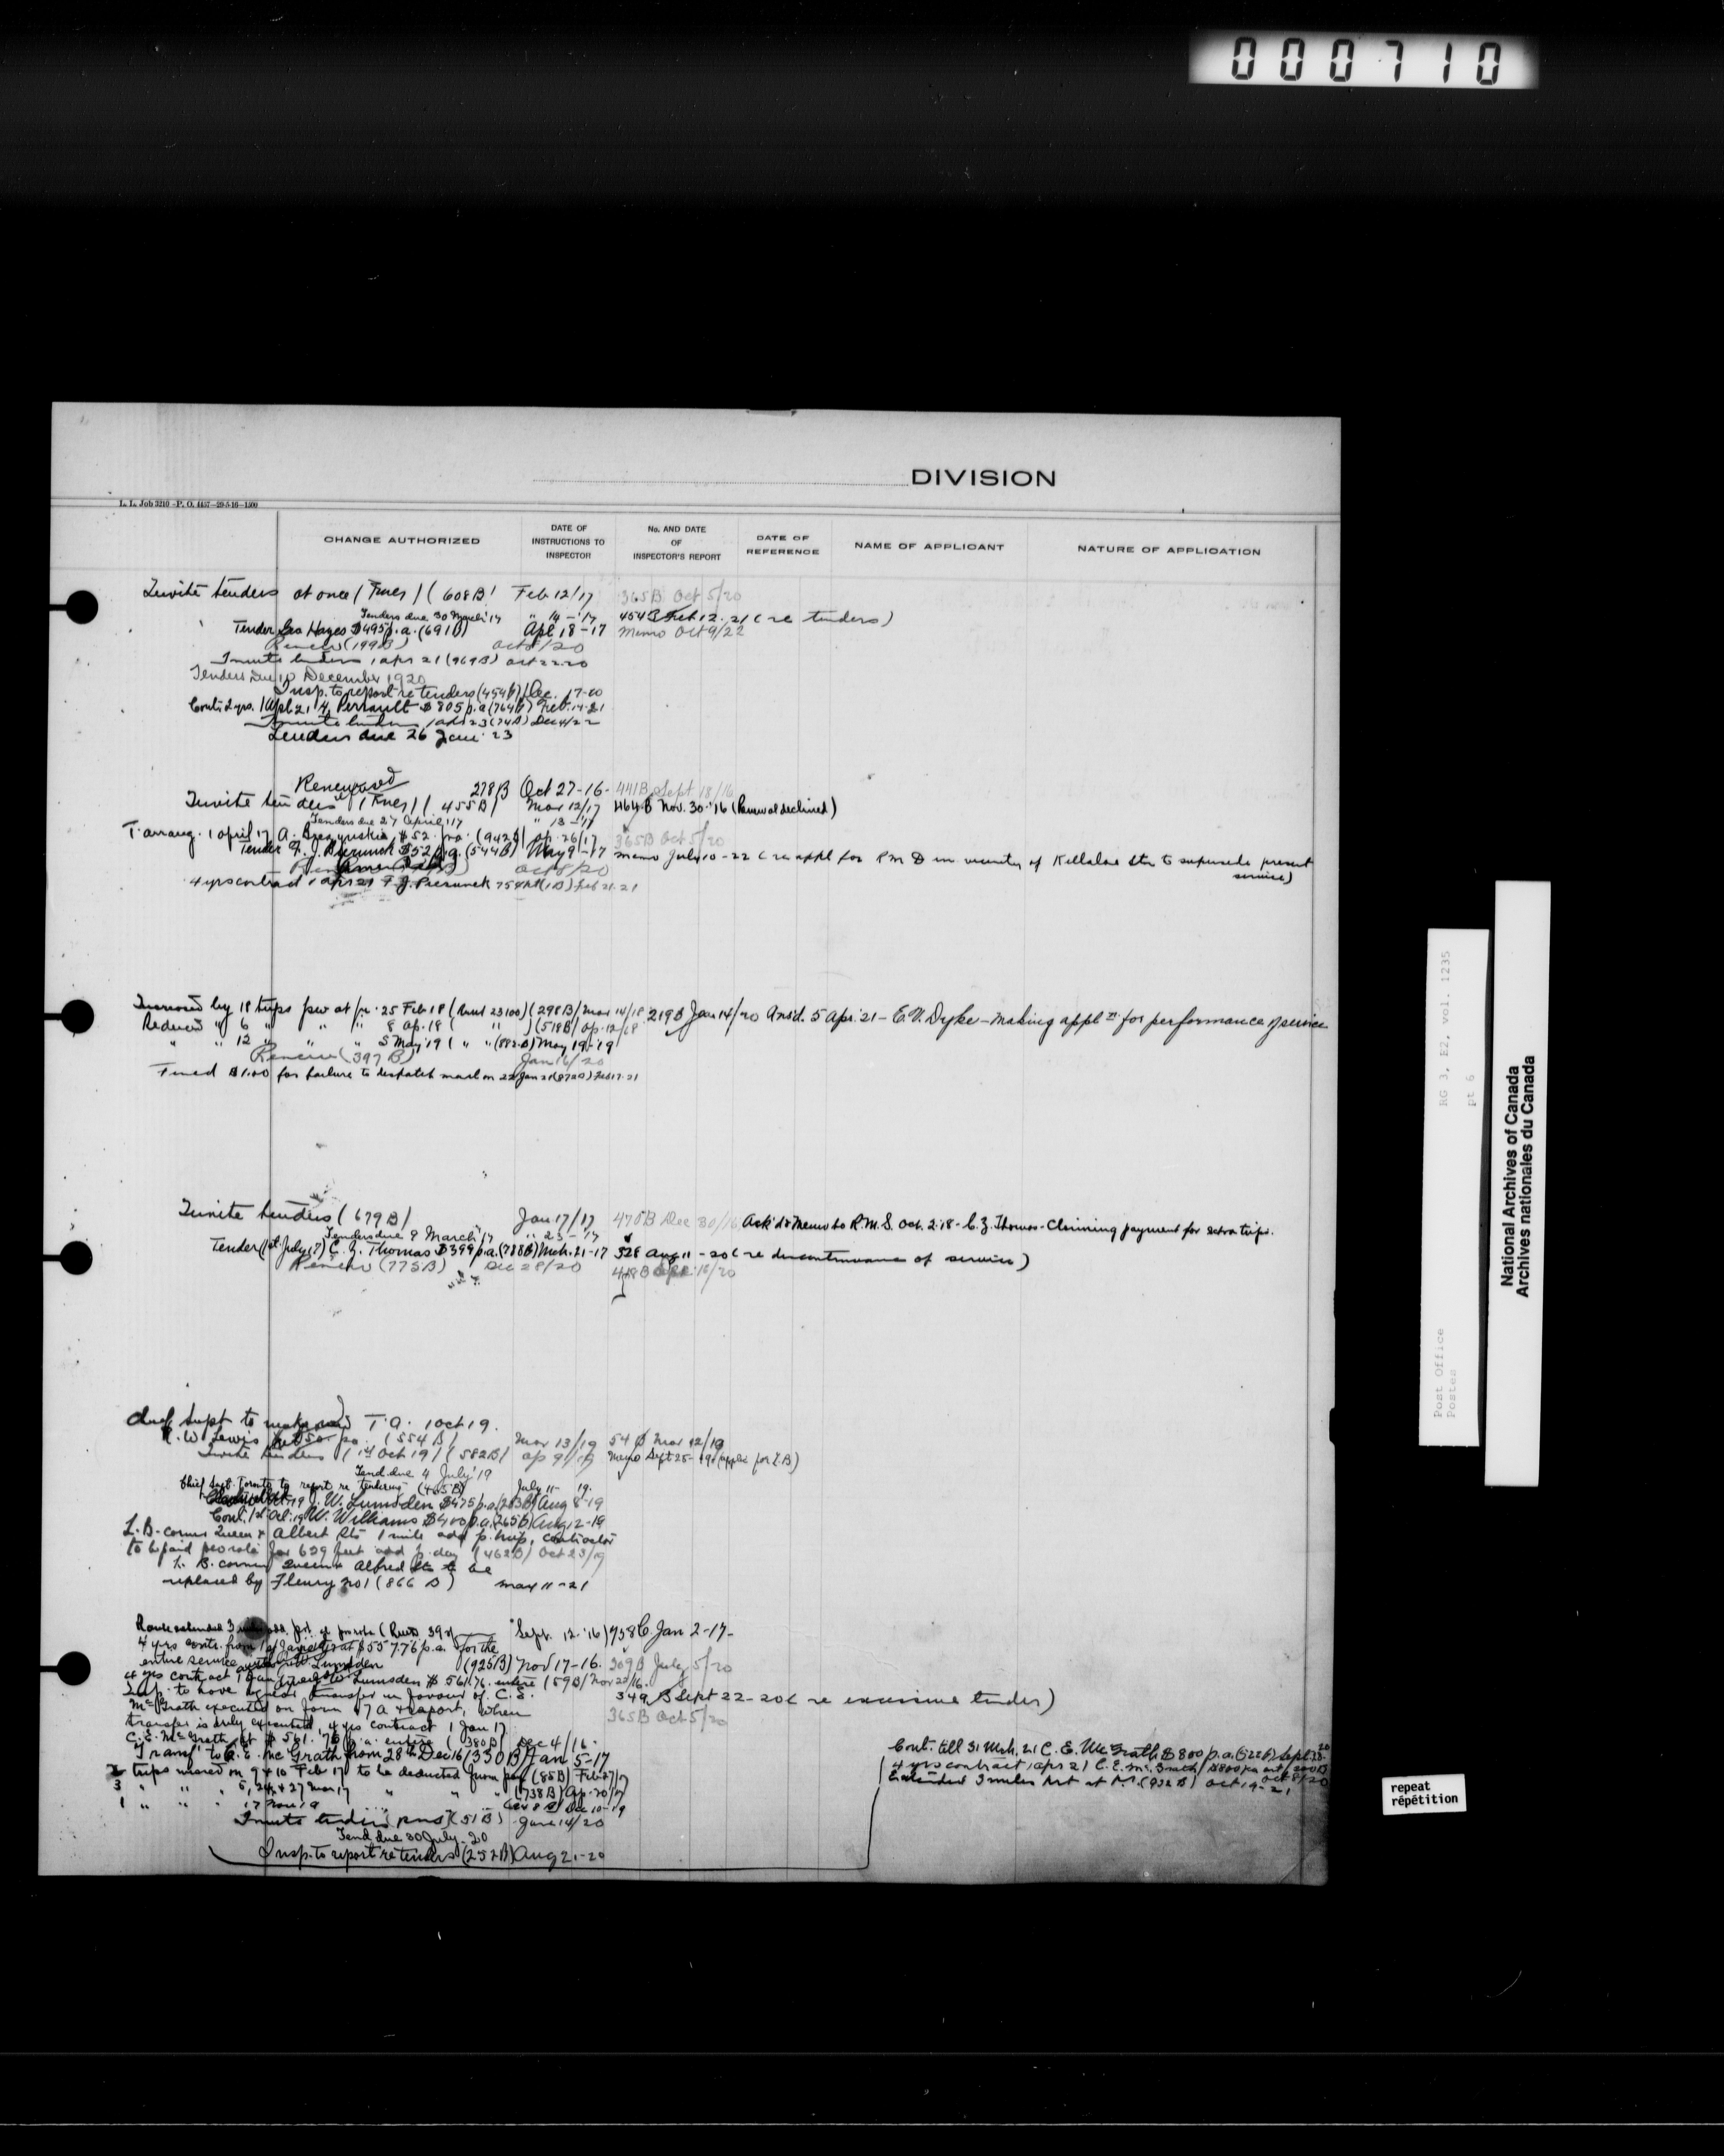 000710
DIVISION
L. L. Job 3210-P. O. 4457-29-5-16-1500
CHANGE AUTHORIZED
DATE OF INSTRUCTIONS TO INSPECTOR
No. AND DATE OF INSPECTOR'S REPORT
DATE OF REFERENCE
NAME OF APPLICANT
NATURE OF APPLICATION
Invite tenders at once (Fmcs) (608B) Feb 12/17 365B Oct 5/20
Tenders due 30 March '17 " 14-'17 454B Feb 12-21 (re tenders)
Tender Geo Hayes $495 p.a. (691B) Apl 18-17 Memo Oct 9/22
Renew (199B) Oct 8/20
Invite tenders 1 apr 21 (969B) Oct 22-20
Tenders Due 10 December 1920
Insp. to report re tenders (454B) Dec. 17-20
Cont. 2 yrs. 1 Apl 21 Perrault $805 p.a. (764B) Feb. 14-21
Invite tenders 1 apr 23 (74B) Dec 4/22
Tenders due 26 Jan. 23
Renewed 278B Oct 27-16 - 441B Sept 18/16
Invite tenders (Fmcs) (455B) Mar 12/17 464B Nov. 30-'16 (Renewal declined)
Tenders due 27 April '17 " 13-'17
T. arrang. 1 april 17 A. $52 pa. (942B) ap. 26/17 365B Oct 5/20
Tender F. J. $52 p.a. (544B) May 9-17 memo July 10-22 (re appl for RMD in vicinity of Killaloe Stn to supersede present
service)
Oct 8/20
4 yrs contract 1 apr 21 F. J. Feb 21-21
Increased by 18 trips pw at fr. 25 Feb 18 (Rmt 23100) (298B) Mar 14/18 219B Jan 14/20 Ansd. 5 Apr. 21 - E. V. Dyke - making appln for performance of service
Reduced " 6 " " " 8 Ap. 18 ( " ) (518B) Ap. 12/18
" " 12 " " " 5 May '19 ( " " (882B) May 19-'19
Renew (397B) Jan 16/20
Fined $1.00 for failure to despatch mail on 22 Jan 21 (872B) Feb 17-21
Invite tenders (679B) Jan 17/17 475B Dec 30/16 Ack'd & Memo to R.M.S. Oct. 2-18 - C. Z. Thomas - Claiming payment for extra trips.
Tenders due 9 March '17 " 23-'17
Tender (1st July 17) C. Z. Thomas $399 p.a. (788B) Mch. 21-17 528 Aug 11-20 (re discontinuance of service)
Renew (775B) Dec 28/20 16/20
Chief Supt to make T.A. 1 Oct 19.
R. W. Lewis (554B) Mar 13/19 54B Mar 12/19
Invite tenders (1st Oct 19) (582B) ap 9/19 Memo Sept 25-19 (applic for L B)
Tend due 4 July '19
Chief Supt. Toronto to report re tenders (465B) July 11- 19.
J. W. Lumsden $475 p.a. (253B) Aug 8-19
Cont. 1st Oct. 19 W. Williams $400 p.a. (265B) Aug 12-19
L. B. corner Queen & Albert Sts 1 mile add p. trip, contractor
to be paid pro rata for 629 feet add p. day (462B) Oct 23/19
L. B. corner Queen & Alfred Sts to be
replaced by Fleury No 1 (866B) May 11-21
Route extended 3 Sept. 12-'16 938C Jan 2-17-
4 yrs contr. from 1st Jany at $557.76 p.a. for the
entire service with Lumsden (925B) Nov 17-16. 309B July 5/20
4 yrs contract 1 Jan 17 Lumsden $561.76 entire (59B) Nov 22/16.
Insp. to have transfer in favour of C. E. 349B Sept 22-20 (re excessive tender)
McGrath executed on form 17A & report, when 365B Oct 5/20
transfer is duly executed, 4 yrs contract 1 Jan 17
C. E. McGrath at $561.76 p.a. entire (380B) Dec 4/16.
Transf. to C. E. McGrath from 28th Dec 16 (330B) Jan 5-17
2 trips missed on 9 & 10 Feb 17 to be deducted from pay (85B) Feb 27/17
3 " " " 5, 24 & 27 Mar 17 " " " (738B) Ap. 20/17
1 " " " 17 Nov 19 Dec 10-19
Invite tenders (51B) Jan 14/20
Tend due 30 July-20
Insp. to report re tenders (252B) Aug 21-20
Cont. till 31 Mch. 21 C. E. McGrath $800 p.a. (522B) Sept 28-20
4 yrs contract 1 apr 21 C. E. McGrath $800 pa ent (200B) Oct 8/20
Extended 3 miles Mt at Mt. (932B) Oct 19-21
RG 3, E2, vol. 1235
pt 6
Post Office
Postes
National Archives of Canada
Archives nationales du Canada
repeat
répétition